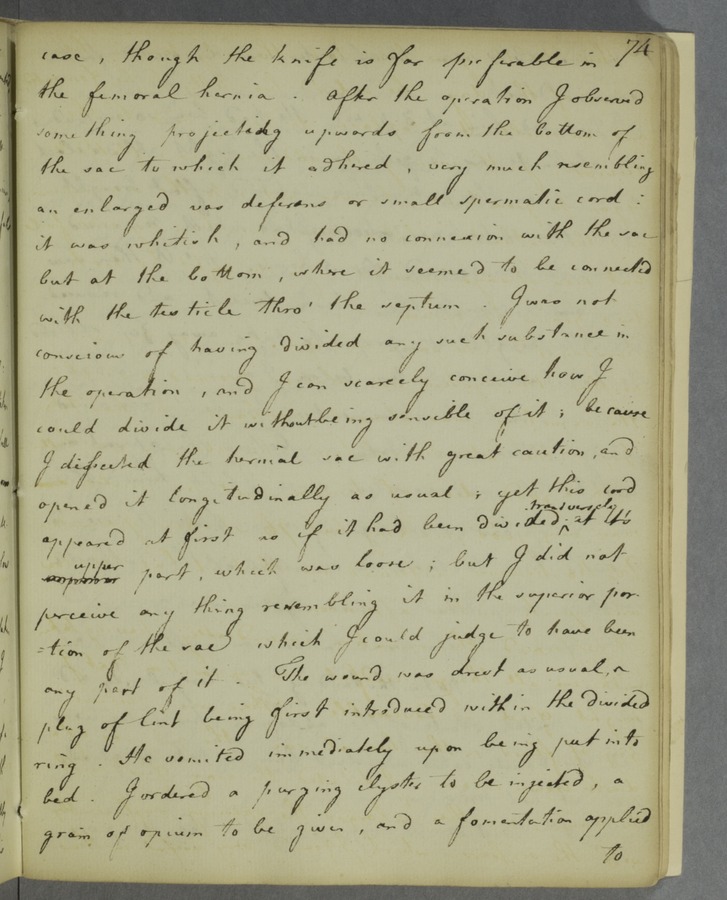 74
case, though the knife is far preferable in
the femoral hernia. After the operation I observed
something projecting upwards from the bottom of
the sac to which it adhered, very much resembling
an enlarged vas deferens or small spermatic cord:
it was whitish, and had no connexion with the sac
but at the bottom, where it seemed to be connected
with the testicle thro' the septum. I was not
conscious of having divided any such substance in
the operation, and I can scarcely conceive how I
could divide it without being sensible of it; because
I dissected the hernial sac with great caution, and
opened it longitudinally as usual; yet this cord
transversely
appeared at first as if it had been divided, at its
upper
part, which was loose; but I did not
perceive any thing resembling it in the superior por-
=tion of the sac which I could judge to have been
any part of it. The wound was drest as usual, a
plug of lint being first introduced within the divided
ring. He vomited immediately upon being put into
bed. I ordered a purging clyster to be injected, a
grain of opium to be given, and a fomentation applied
to